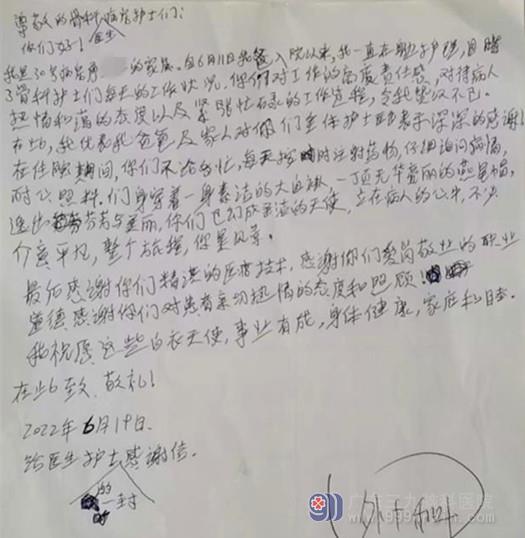 尊敬的骨科病房护士们:
医生
你们好!
我是30号病床 的家属。自6月11日我爸入院以来,我一直在 护理,目睹
了骨科护士们每天的工作状况,你们对工作的高度责任感,对待病人
热情和蔼的态度以及紧张忙碌的工作过程,令我 不已。
在此,我代表我爸爸及家人对你们全体护士 表示深深的感谢!
在住院期间,你们不论多忙,每天按时注射药物,仔细询问病情,
耐心照料。们身穿着一身素洁的大白褂,一顶无华 的燕尾帽,
逸出 芬芳与美丽,你们已幻成圣洁的天使,立在病人的心中,不
介意平凡,整个旅程,你是风景。
最后感谢你们精湛的医疗技术,感谢你们爱岗敬业的职业
道德感谢你们对患者亲切热情的态度和照顾.
我祝愿这些白衣天使,事业有成,身体健康,家庭和
在此 致敬礼!
2022年6月19日.
给医生护士感谢信.
的一封
广东三九脑科医院
www.999brain.com